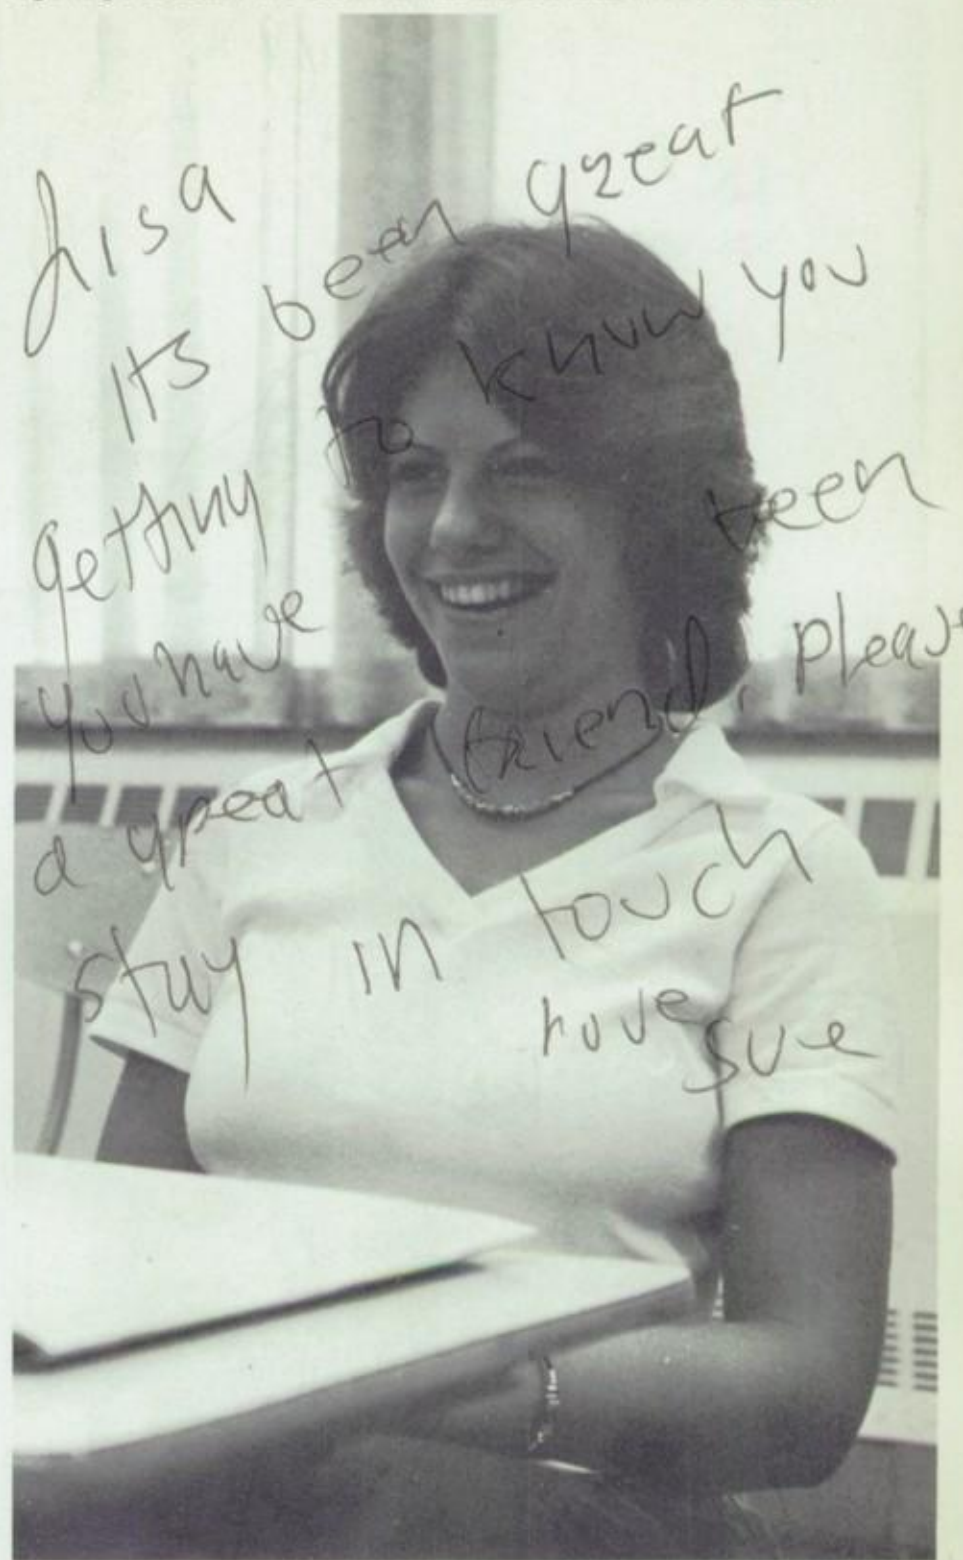 Lisa
Its been great
getting to know you
you have been
a great friend, please
stay in touch
Love
Sue